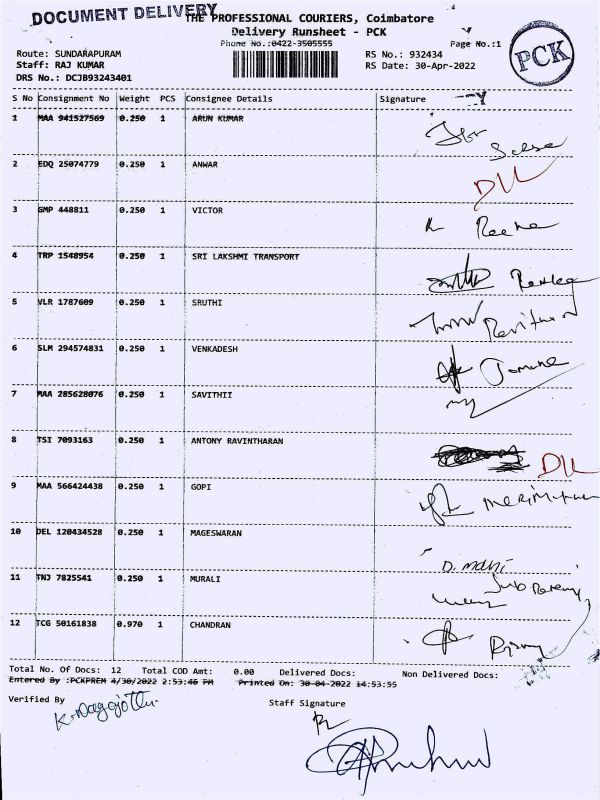 DOCUMENT DELIVERY
THE PROFESSIONAL COURIERS, Coimbatore
Delivery Runsheet - PCK
Phone No.:0422-3505555
Page No.:1
PCK
Route: SUNDARAPURAM
RS No.: 932434
Staff: RAJ KUMAR
RS Date: 30-Apr-2022
DRS No.: DCJB93243401
S No Consignment No Weight PCS Consignee Details Signature
1 MAA 941527569 0.250 1 ARUN KUMAR
2 EDQ 25074779 0.250 1 ANWAR
DLL
3 GMP 448811 0.250 1 VICTOR
4 TRP 1548954 0.250 1 SRI LAKSHMI TRANSPORT
5 VLR 1787609 0.250 1 SRUTHI
6 SLM 294574831 0.250 1 VENKADESH
7 MAA 285628076 0.250 1 SAVITHII
8 TSI 7093163 0.250 1 ANTONY RAVINTHARAN
DLL
9 MAA 566424438 0.250 1 GOPI
10 DEL 120434528 0.250 1 MAGESWARAN
D. mani
11 TNJ 7825541 0.250 1 MURALI
12 TCG 50161838 0.970 1 CHANDRAN
Total No. Of Docs: 12 Total COD Amt: 0.00 Delivered Docs: Non Delivered Docs:
Entered By :PCKPREM 4/30/2022 2:53:46 PM Printed On: 30-04-2022 14:53:55
Verified By Staff Signature